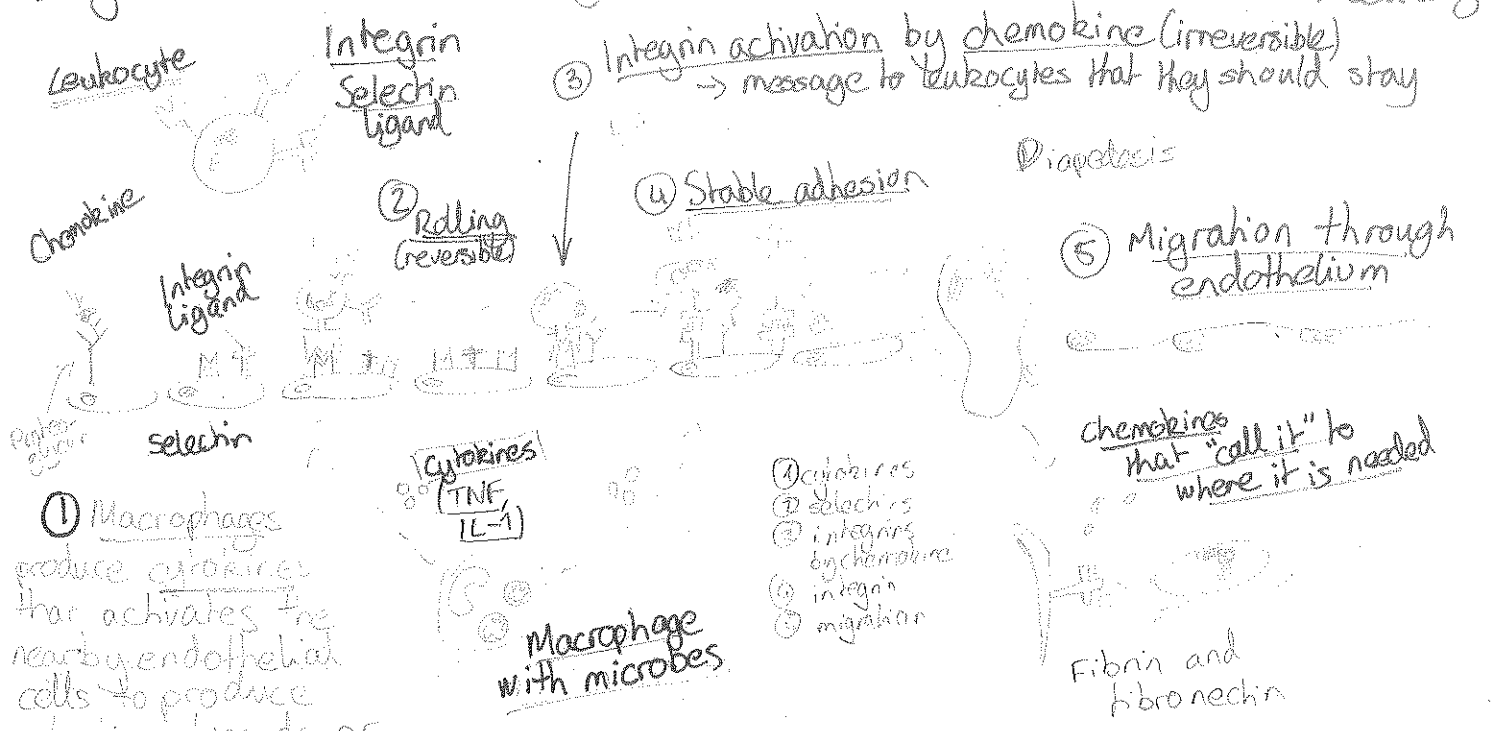 Leukocyte
Integrin
Selectin
ligand
③ Integrin activation by chemokine (irreversible)
→ message to leukocytes that they should stay
Diapedesis
Chemokine
② Rolling
(reversible)
④ Stable adhesion
⑤ Migration through
endothelium
Integrin
ligand
selectin
cytokines
(TNF,
IL-1)
① cytokines
② selectins
③ integrins
by chemokine
④ integrin
⑤ migration
chemokines
that "call it" to
where it is needed
① Macrophages
produce cytokines
that activates the
nearby endothelial
cells to produce
Macrophage
with microbes
Fibrin and
fibronectin